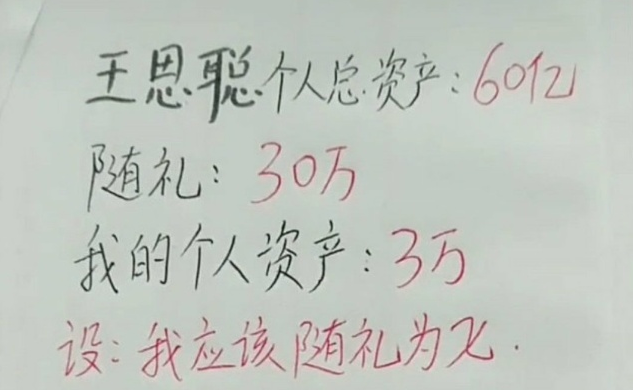 王恩聪个人总资产:60亿
随礼:30万
我的个人资产:3万
设:我应该随礼为x.